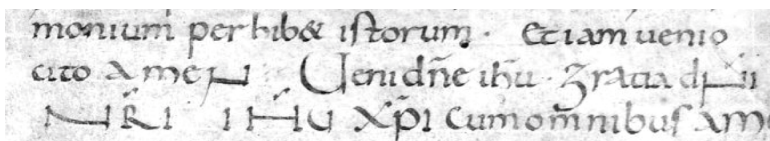 monium perhib& istorum · Etiam uenio
cito amen Uenidn̄e ih̄u · gratia dn̄i
NR̄I IHŪ XP̄I cumomnibus am